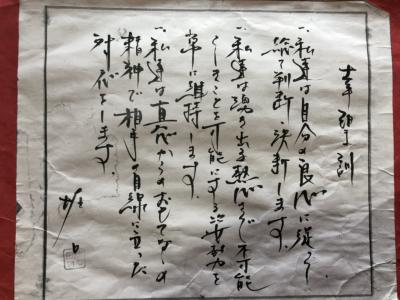 訓
一、私達は自分の良心に従い、
総て判断、決断します。
一、私達は魂の出る熱心さで不可能
しきことを可能にする努力を
常に維持します。
一、私達は真心からのおもてなしの
精神で相手の目線に立った
対応をします。